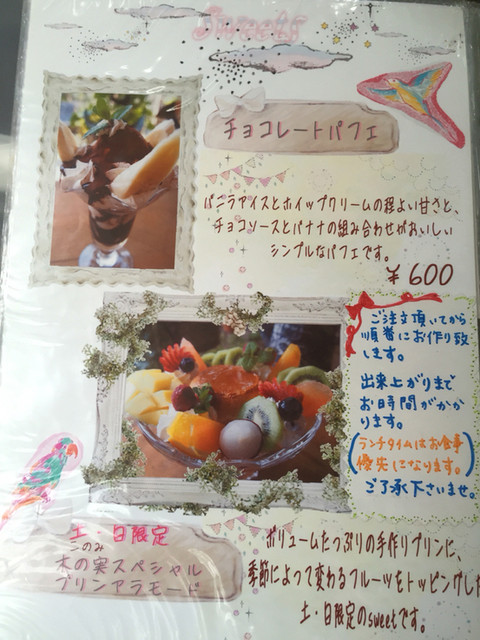 Sweets
チョコレートパフェ
バニラアイスとホイップクリームの程よい甘さと、
チョコソースとバナナの組み合わせがおいしい
シンプルなパフェです。
¥600
ご注文頂いてから
順番にお作り致
します。
出来上がりまで
お時間がかか
ります。
(ランチタイムはお食事
優先になります。)
ご了承下さいませ。
土・日限定
このみ
木の実スペシャル
プリンアラモード
ボリュームたっぷりの手作りプリンに、
季節によって変わるフルーツをトッピングした
土・日限定のsweetです。